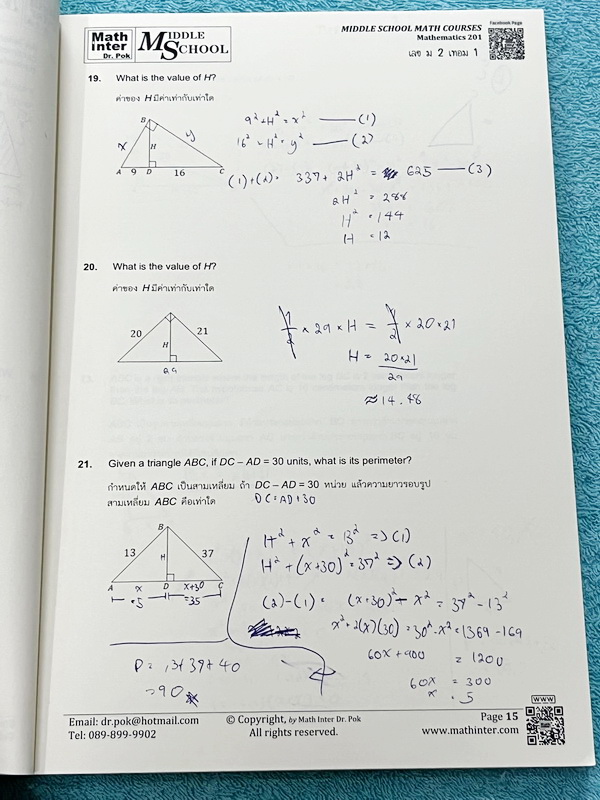 Math Inter Dr. Pok
MIDDLE SCHOOL
MIDDLE SCHOOL MATH COURSES
Mathematics 201
เลข ม 2 เทอม 1
Facebook Page
19. What is the value of H?
ค่าของ H มีค่าเท่ากับเท่าใด
B
x
y
H
A 9 D 16 C
9² + H² = x² —— (1)
16² + H² = y² —— (2)
(1)+(2) = 337 + 2H² = 625 —— (3)
2H² = 288
H² = 144
H = 12
20. What is the value of H?
ค่าของ H มีค่าเท่ากับเท่าใด
20
21
H
29
1/2 × 29 × H = 1/2 × 20 × 21
H = 20×21
29
≈ 14.48
21. Given a triangle ABC, if DC – AD = 30 units, what is its perimeter?
กำหนดให้ ABC เป็นสามเหลี่ยม ถ้า DC – AD = 30 หน่วย แล้วความยาวรอบรูป
สามเหลี่ยม ABC คือเท่าใด
DC = AD+30
B
13
H
37
A x D x+30 C
=5
=35
H² + x² = 13² => (1)
H² + (x+30)² = 37² => (2)
(2)-(1) = (x+30)² - x² = 37² - 13²
x² + 2(x)(30) + 30² - x² = 1369 - 169
60x + 900 = 1200
60x = 300
x = 5
P = 13+37+40
= 90
Email: dr.pok@hotmail.com
Tel: 089-899-9902
© Copyright, by Math Inter Dr. Pok
All rights reserved.
Page 15
www.mathinter.com
WWW